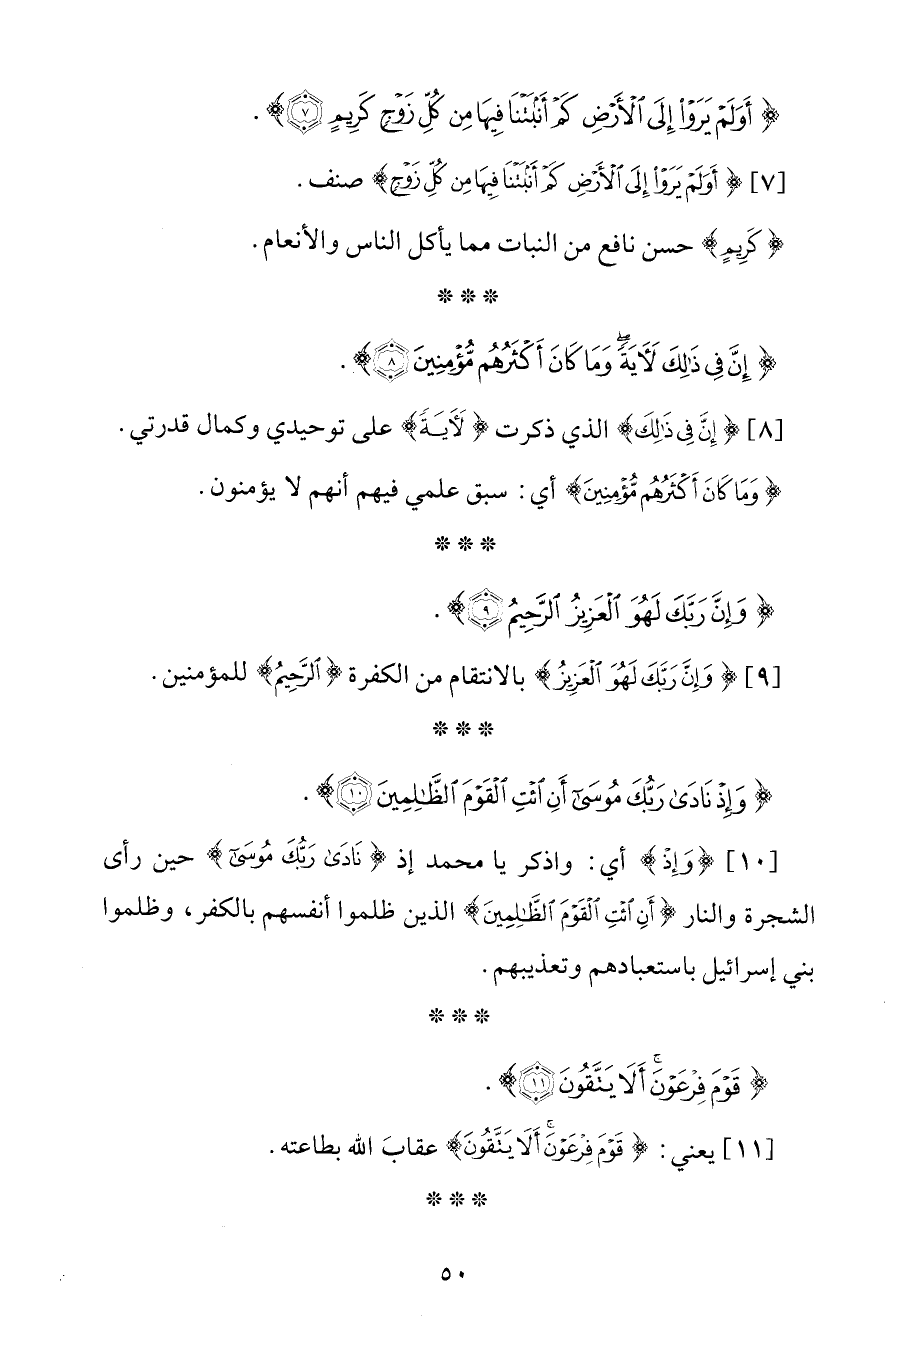 ﴿ أَوَلَمْ يَرَوْا۟ إِلَى ٱلْأَرْضِ كَمْ أَنۢبَتْنَا فِيهَا مِن كُلِّ زَوْجٍ كَرِيمٍ ٧ ﴾ .
[٧] ﴿ أَوَلَمْ يَرَوْا۟ إِلَى ٱلْأَرْضِ كَمْ أَنۢبَتْنَا فِيهَا مِن كُلِّ زَوْجٍ ﴾ صنف .
﴿ كَرِيمٍ ﴾ حسن نافع من النبات مما يأكل الناس والأنعام .
* * *
﴿ إِنَّ فِى ذَٰلِكَ لَـَٔايَةً ۖ وَمَا كَانَ أَكْثَرُهُم مُّؤْمِنِينَ ٨ ﴾ .
[٨] ﴿ إِنَّ فِى ذَٰلِكَ ﴾ الذي ذكرت ﴿ لَـَٔايَةً ﴾ على توحيدي وكمال قدرتي .
﴿ وَمَا كَانَ أَكْثَرُهُم مُّؤْمِنِينَ ﴾ أي : سبق علمي فيهم أنهم لا يؤمنون .
* * *
﴿ وَإِنَّ رَبَّكَ لَهُوَ ٱلْعَزِيزُ ٱلرَّحِيمُ ٩ ﴾ .
[٩] ﴿ وَإِنَّ رَبَّكَ لَهُوَ ٱلْعَزِيزُ ﴾ بالانتقام من الكفرة ﴿ ٱلرَّحِيمُ ﴾ للمؤمنين .
* * *
﴿ وَإِذْ نَادَىٰ رَبُّكَ مُوسَىٰٓ أَنِ ٱئْتِ ٱلْقَوْمَ ٱلظَّـٰلِمِينَ ١٠ ﴾ .
[١٠] ﴿ وَإِذْ ﴾ أي : واذكر يا محمد إذ ﴿ نَادَىٰ رَبُّكَ مُوسَىٰٓ ﴾ حين رأى
الشجرة والنار ﴿ أَنِ ٱئْتِ ٱلْقَوْمَ ٱلظَّـٰلِمِينَ ﴾ الذين ظلموا أنفسهم بالكفر ، وظلموا
بني إسرائيل باستعبادهم وتعذيبهم .
* * *
﴿ قَوْمَ فِرْعَوْنَ ۚ أَلَا يَتَّقُونَ ١١ ﴾ .
[١١] يعني : ﴿ قَوْمَ فِرْعَوْنَ ۚ أَلَا يَتَّقُونَ ﴾ عقابَ الله بطاعته .
* * *
٥٠